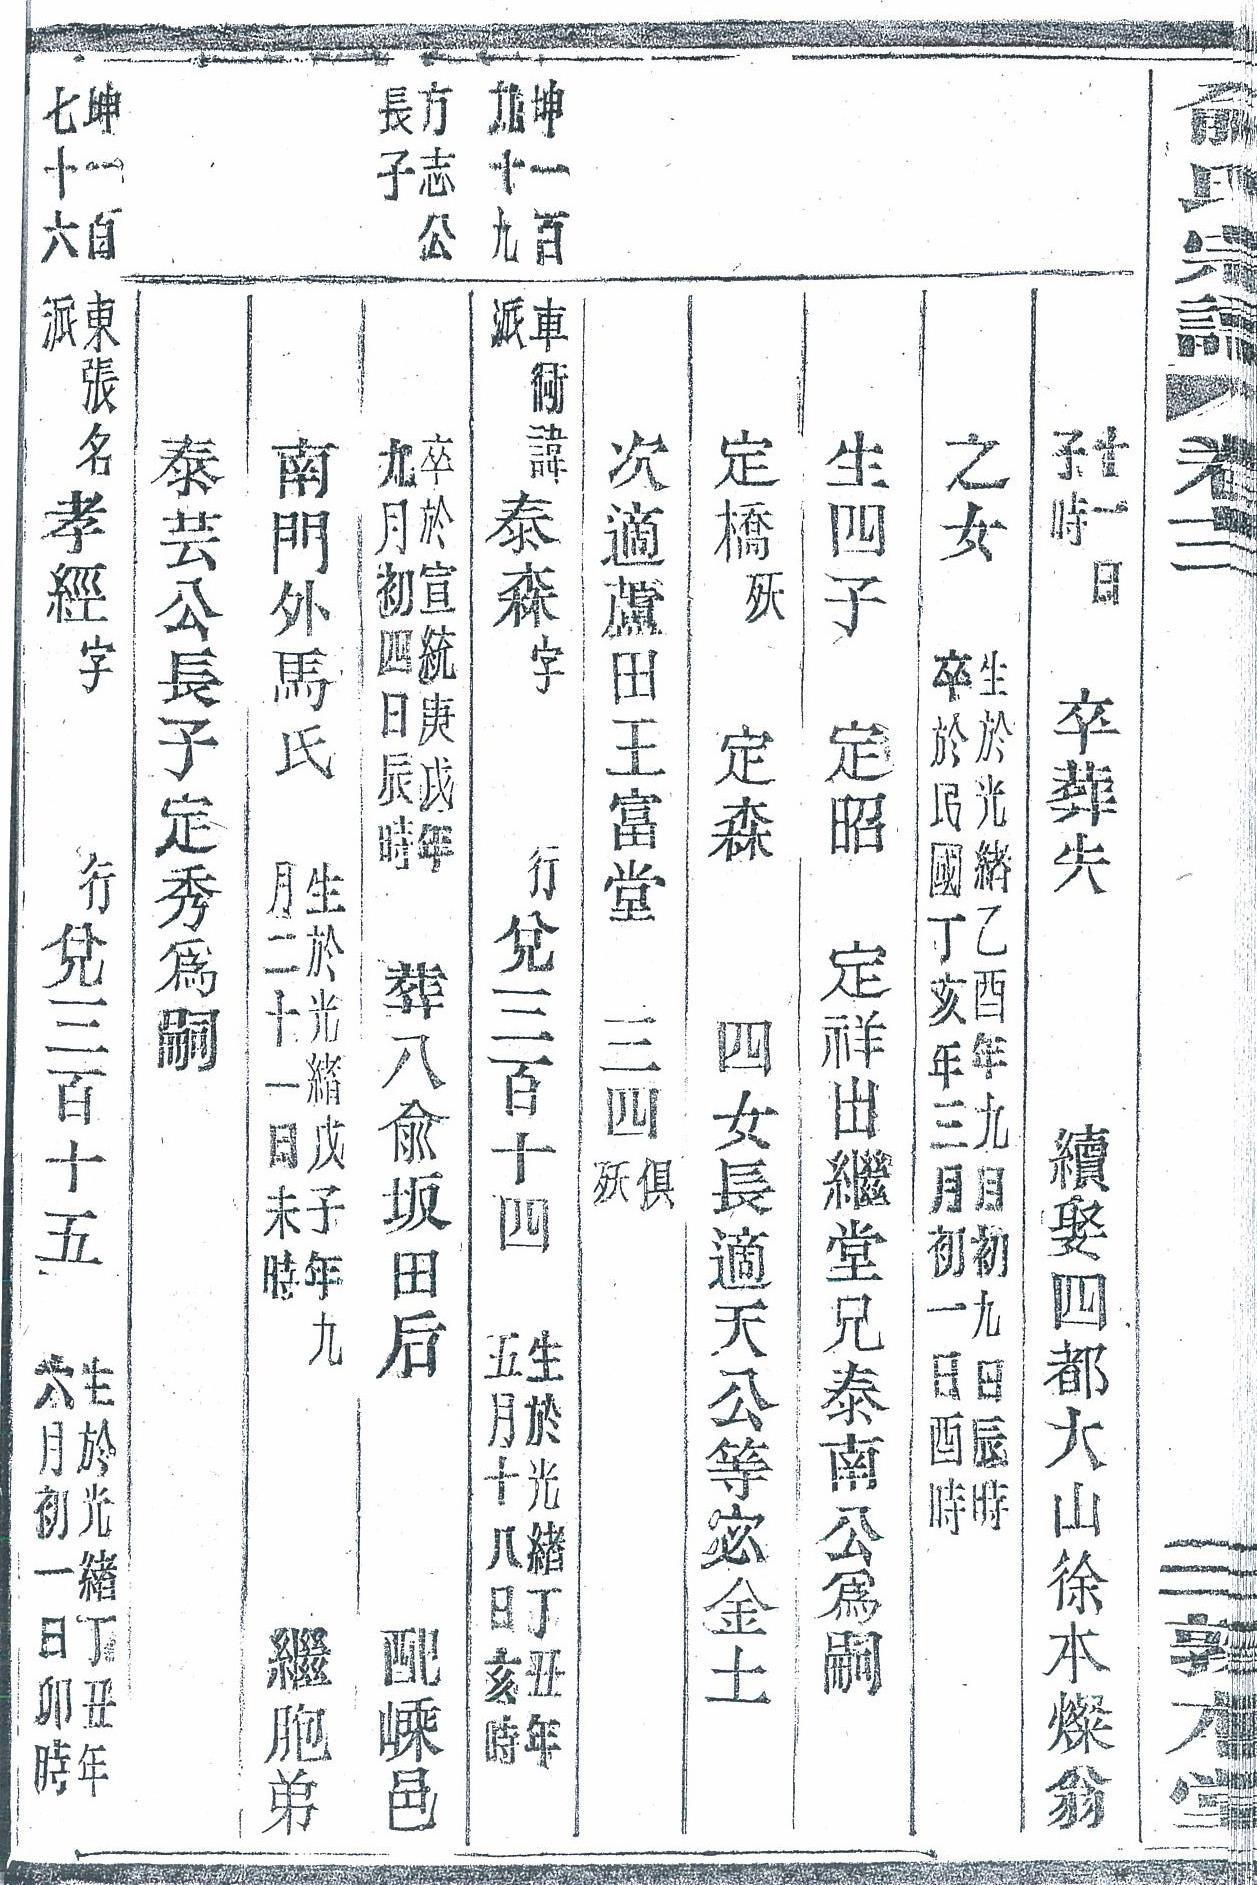 俞氏宗譜 卷三 三 敦本堂
十一日子時 卒葬失 續娶四都大山徐本燦翁
之女 生於光緒乙酉年九月初九日辰時卒於民國丁亥年三月初一日酉時
生四子 定昭 定祥出繼堂兄泰南公爲嗣
定橋殀 定森 四女長適天公等宓金土
次適蘆田王富堂 三四俱殀
坤一百九十九 車衖派諱泰森字 行兌三百十四 生於光緒丁丑年五月十八日亥時
方志公長子 卒於宣統庚戌年九月初四日辰時 葬八俞坂田后 配嵊邑
南門外馬氏 生於光緒戊子年九月二十一日未時 繼胞弟
泰芸公長子定秀爲嗣
坤一百七十六 東張派名孝經字 行兌三百十五 生於光緒丁丑年六月初一日卯時